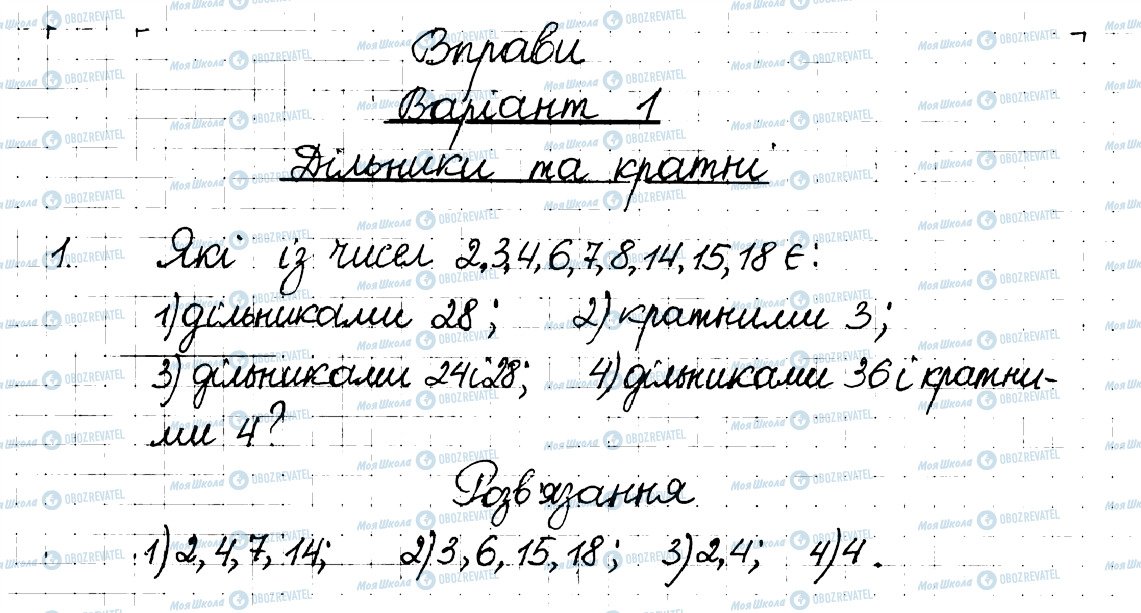 Вправи
Варіант 1
Дільники та кратні
1. Які із чисел 2,3,4,6,7,8,14,15,18 є:
1) дільниками 28; 2) кратними 3;
3) дільниками 24 і 28; 4) дільниками 36 і кратни-
ми 4?
Розв'язання
1) 2, 4, 7, 14; 2) 3, 6, 15, 18; 3) 2, 4; 4) 4.
Моя Школа OBOZREVATEL